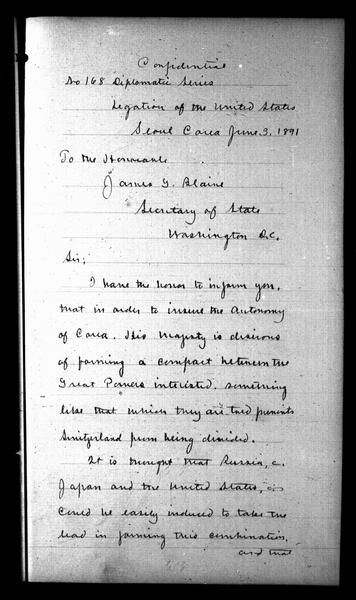 Confidential
No 168 Diplomatic Series
Legation of the United States
Seoul Corea June 3, 1891
To the Honorable
James G. Blaine
Secretary of State
Washington D.C.
Sir;
I have the honor to inform you,
that in order to insure the Autonomy
of Corea. His Majesty is desirous
of forming a compact between the
Great Powers interested. something
like that which they are told prevents
Switzerland from being divided.
It is thought that Russia,
Japan and the United States,
could be easily induced to take the
lead in forming this combination,
and that